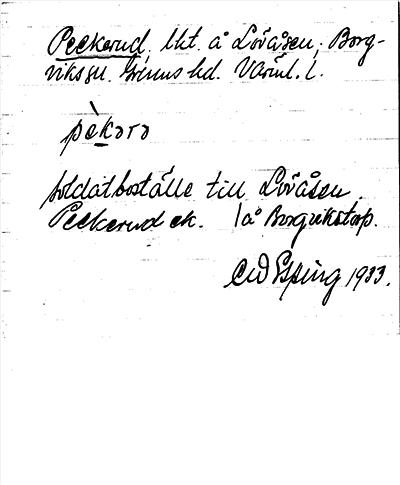 Peckerud. lht. å Lövåsen, Borg-
viks sn. Grums hd. Värml. l.
pèkərə
soldatboställe till Lövåsen.
Peckerud ek. | å Borgvikstorp.
Esping 1933.